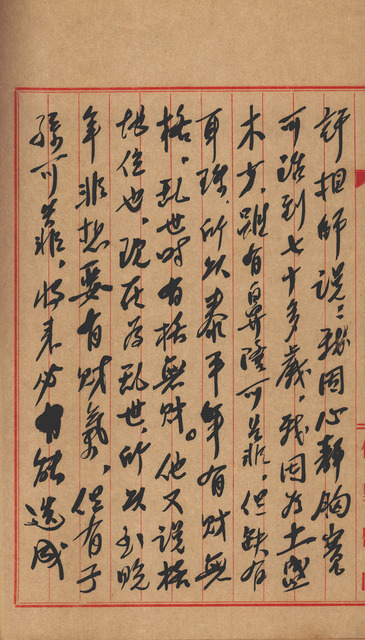 許相師說：我因心靜胸寬
可活到七十多歲，我因為土盛
木少，雖有鼻隆可益，但缺有
耳珠，所以泰平年有財無
格，亂世時有格無財。他又說格
地位也，現在為亂世，所以到晚
年非想要有財氣，但有子
孫可益，將來必有能造成